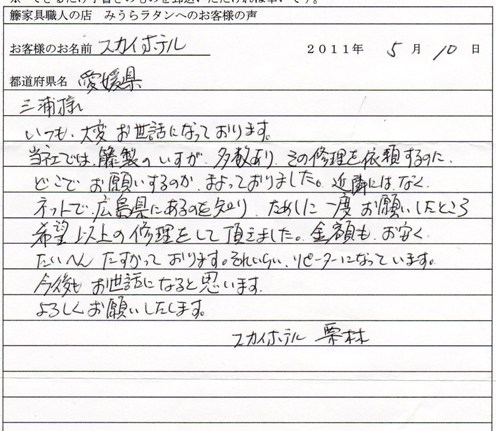 籐家具職人の店 みうらラタンへのお客様の声
お客様のお名前 スカイホテル 2011年 5月 10日
都道府県名 愛媛県
三浦様
いつも、大変お世話になっております。
当社では、籐製のいすが、多数あり、その修理を依頼するのに、
どこでお願いするのか、まよっておりました。近隣にはなく、
ネットで、広島県にあるのを知り、ためしに一度お願いしたところ
希望以上の修理をして頂きました。金額も、お安く、
たいへんたすかっております。それいらい、リピーターになっています。
今後もお世話になると思います。
よろしくお願いいたします。
スカイホテル 栗林